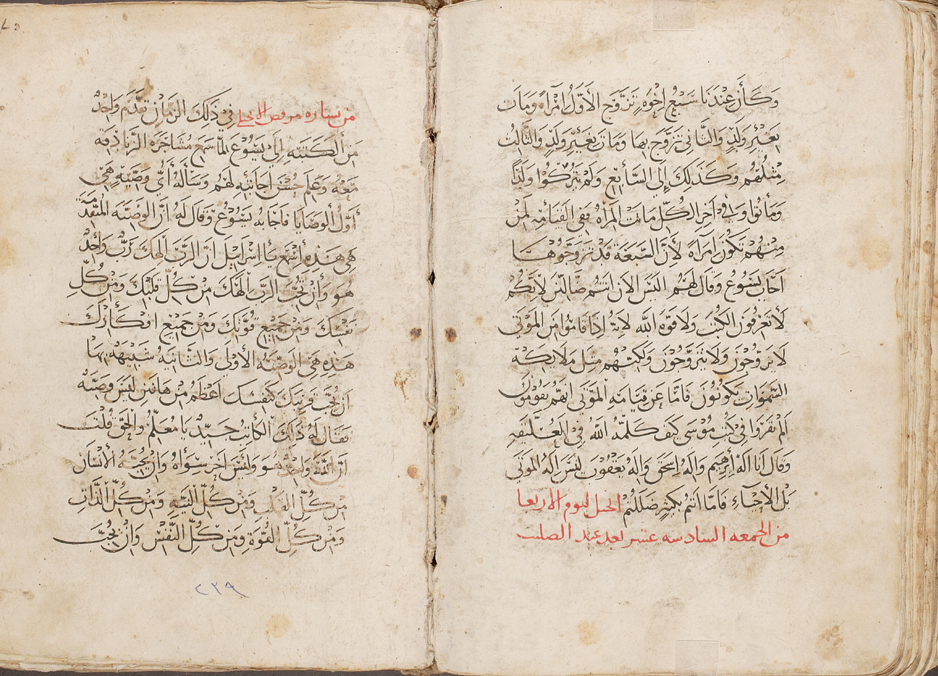 وكان عندنا سبع اخوه تزوج الاول امراه ومات
بغير ولد والثاني تزوج بها ومات بغير ولد والثالث
مثلهم وكذلك الى السابع ولم يتركوا ولدًا
وماتوا وفي اخر الكل ماتت المراه ففي القيامه لمن
منهم تكون امراه لان السبعه قد تزوجوها
اجاب يسوع وقال لهم اليس الان انتم ضالين لانكم
لا تعرفون الكتب ولا قوه الله لانه اذا قاموا من الموتى
لا يزوجون ولا يتزوجون ولكنهم مثل ملايكه
السموات يكونون فاما عن قيامه الموتى انهم يقومون
الم تقروا في كتب موسى كيف كلمه الله في العليقه
وقال انا اله ابرهيم واله اسحق واله يعقوب ليس اله الموتى
بل الاحياء فاما انتم بكثير ضللتم انجيل ليوم الاربعا
من الجمعه السادسه عشر بعد عيد الصليب
من بشاره مرقص الانجيلي في ذلك الزمان تقدم واحد
من الكتبه الى يسوع لما سمع مشاجره الزنادقه
معه وعلم حسن اجابته لهم وساله اي وصيه هي
اول الوصايا فاجابه يسوع وقال له ان الوصيه المتقدمه
هي هذه اسمع يا اسراييل ان الرب الهك رب واحد
هو وان تحب الرب الهك من كل قلبك ومن كل
نفسك ومن جميع قوتك ومن جميع افكارك
هذه هي الوصيه الاولى والثانيه شبيهه بها
ان تحب قريبك كنفسك اعظم من هاتين ليس وصيه
فقال له ذلك الكاتب جيد يا معلم والحق قلت
ان الله واحد هو وليس اخر سواه وان يحبه الانسان
من كل القلب ومن كل النيه ومن كل الذات
ومن كل القوه ومن كل النفس وان يحب
٢٣٩